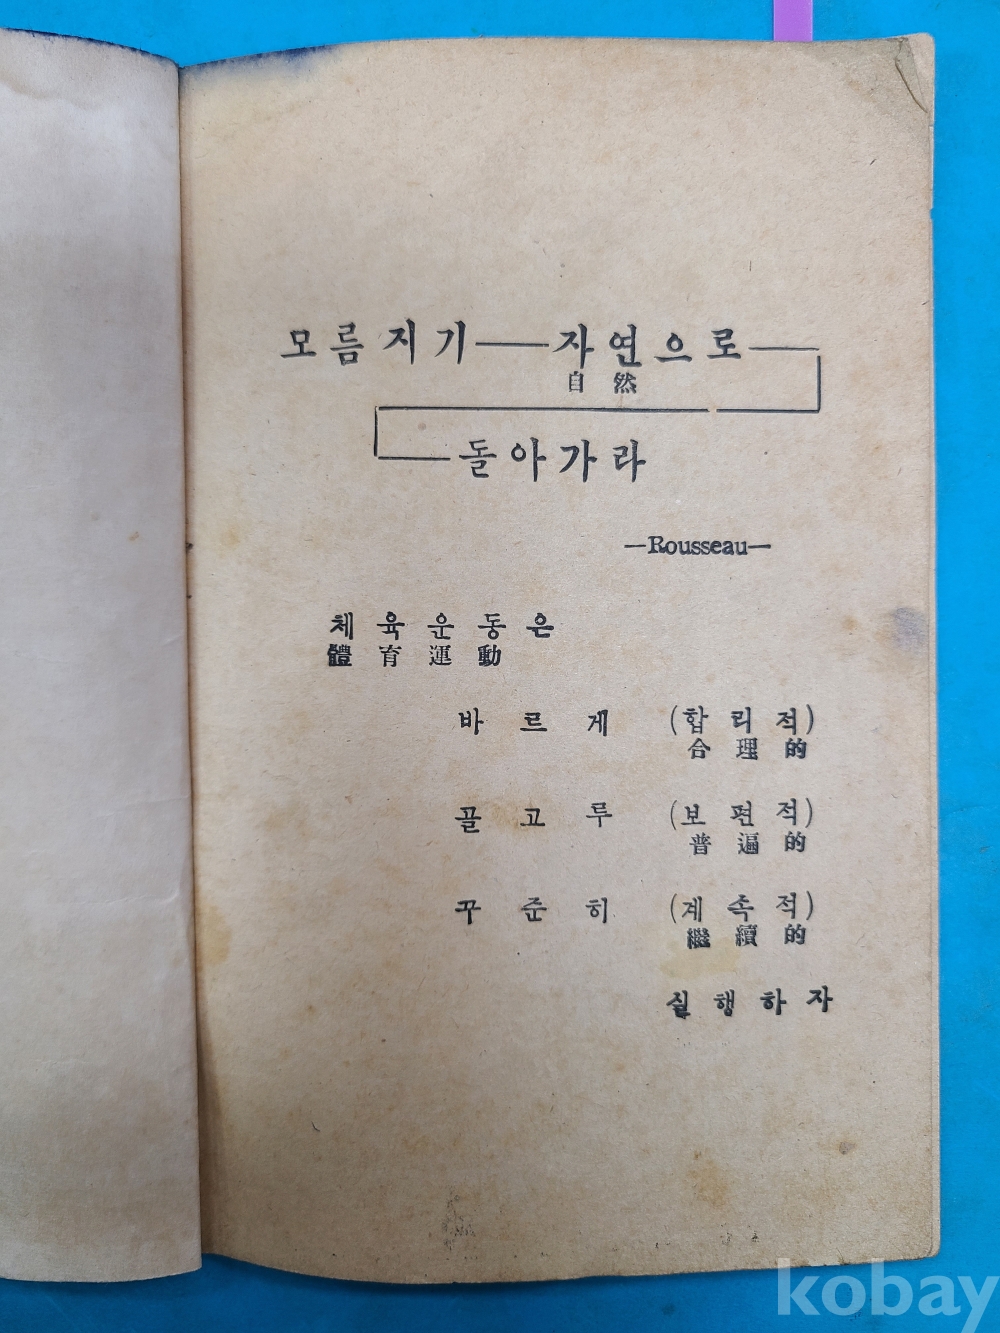 모름지기——자연으로——
自然
——돌아가라
—Rousseau—
체육운동은
體育運動
바르게 (합리적)
合理的
골고루 (보편적)
普遍的
꾸준히 (계속적)
繼續的
실행하자
kobay